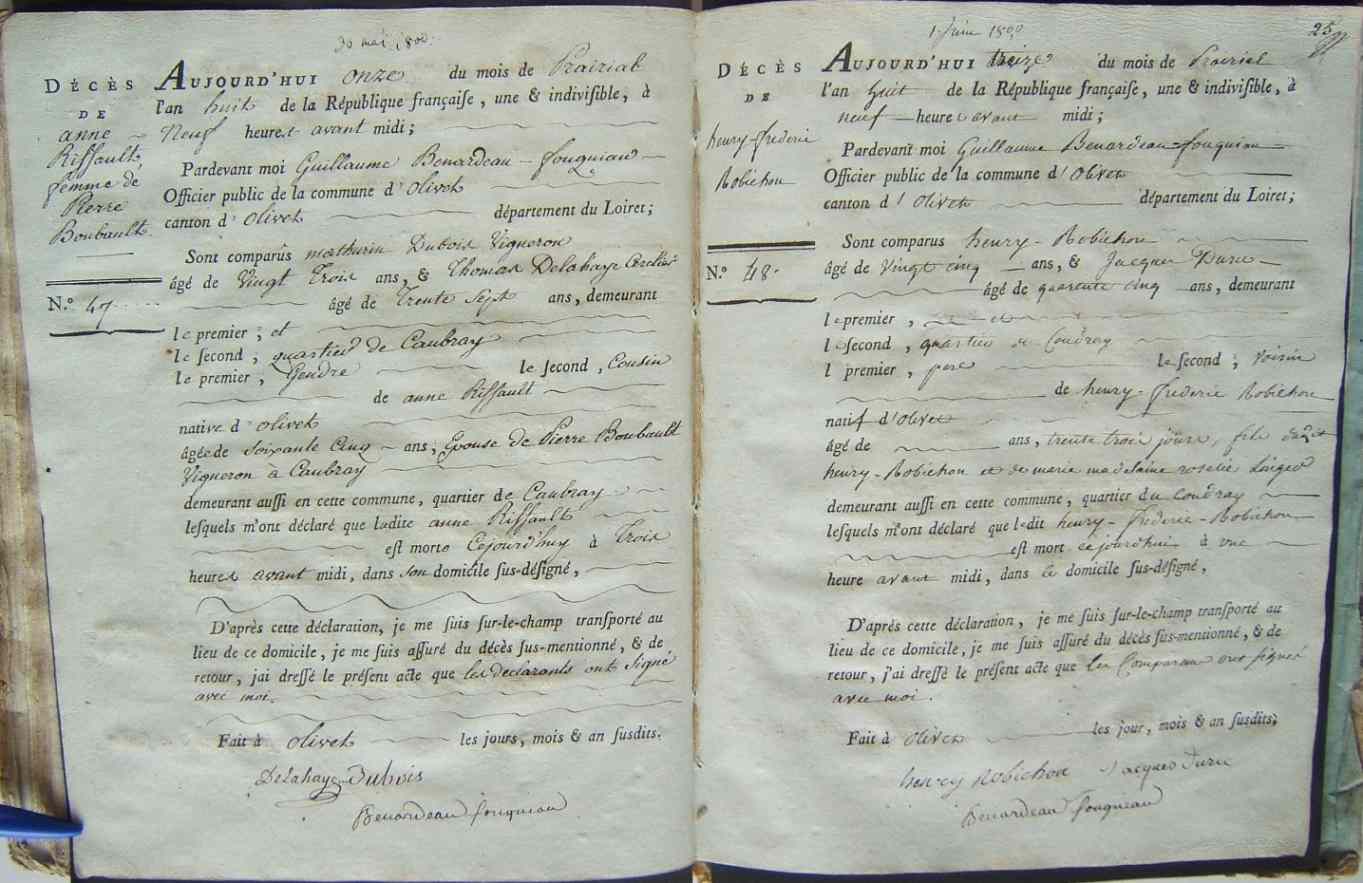 30 mai 1800.
DÉCÈS
DE
anne
Riffault,
femme de
Pierre
Boubault
N.º 47
AUJOURD'HUI onze du mois de Prairial
l'an huit de la République françaiſe, une & indiviſible, à
Neuf heures avant midi;
Pardevant moi Guillaume Benardeau - fouquiau
Officier public de la commune d'olivet
canton d'olivet département du Loiret;
Sont comparus mathurin Dubois Vigneron
âgé de Vingt Trois ans, & Thomas Delahaye
âgé de Trente Sept ans, demeurant
le premier, et
le ſecond, quartier de Caubray
le premier, Gendre le ſecond, Cousin
de anne Riffault
native d'olivet
âgée de soixante Cinq ans, Epouse de Pierre Boubault
Vigneron à Caubray
demeurant auſſi en cette commune, quartier de Caubray
leſquels m'ont déclaré que ladite anne Riffault
eſt morte Cejourd'huy à Trois
heures avant midi, dans son domicile ſus-déſigné,
D'après cette déclaration, je me ſuis ſur-le-champ tranſporté au
lieu de ce domicile, je me ſuis aſſuré du décès ſus-mentionné, & de
retour, j'ai dreſſé le préſent acte que les declarants ont signé
avec moi.
Fait à olivet les jours, mois & an ſusdits.
Delahaye Dubois
Benardeau fouquiau
1 juin 1800
25
DÉCÈS
DE
henry-frederic
Robichon
N.º 48.
AUJOURD'HUI treize du mois de Prairial
l'an huit de la République françaiſe, une & indiviſible, à
neuf heure avant midi;
Pardevant moi Guillaume Benardeau-fouquiau
Officier public de la commune d'Olivet
canton d'Olivet département du Loiret;
Sont comparus henry-Robichon
âgé de Vingt cinq ans, & Jacques Duru
âgé de quarente cinq ans, demeurant
le premier, et
le ſecond, quartier du Coudray
le premier, pere le ſecond, voisin
de henry-frederic Robichon
natif d'Olivet
âgé de ans, trente trois jours, fils dudit
henry-Robichon et de marie madelaine roselie
demeurant auſſi en cette commune, quartier du Coudray
leſquels m'ont déclaré que ledit henry-frederic-Robichon
eſt mort cejourd'hui à une
heure avant midi, dans le domicile ſus-déſigné,
D'après cette déclaration, je me ſuis ſur-le-champ tranſporté au
lieu de ce domicile, je me ſuis aſſuré du décès ſus-mentionné, & de
retour, j'ai dreſſé le préſent acte que les Comparans ont signé
avec moi.
Fait à olivet les jour, mois & an ſusdits;
henry Robichon Jacques duru
Benardeau fouquiau